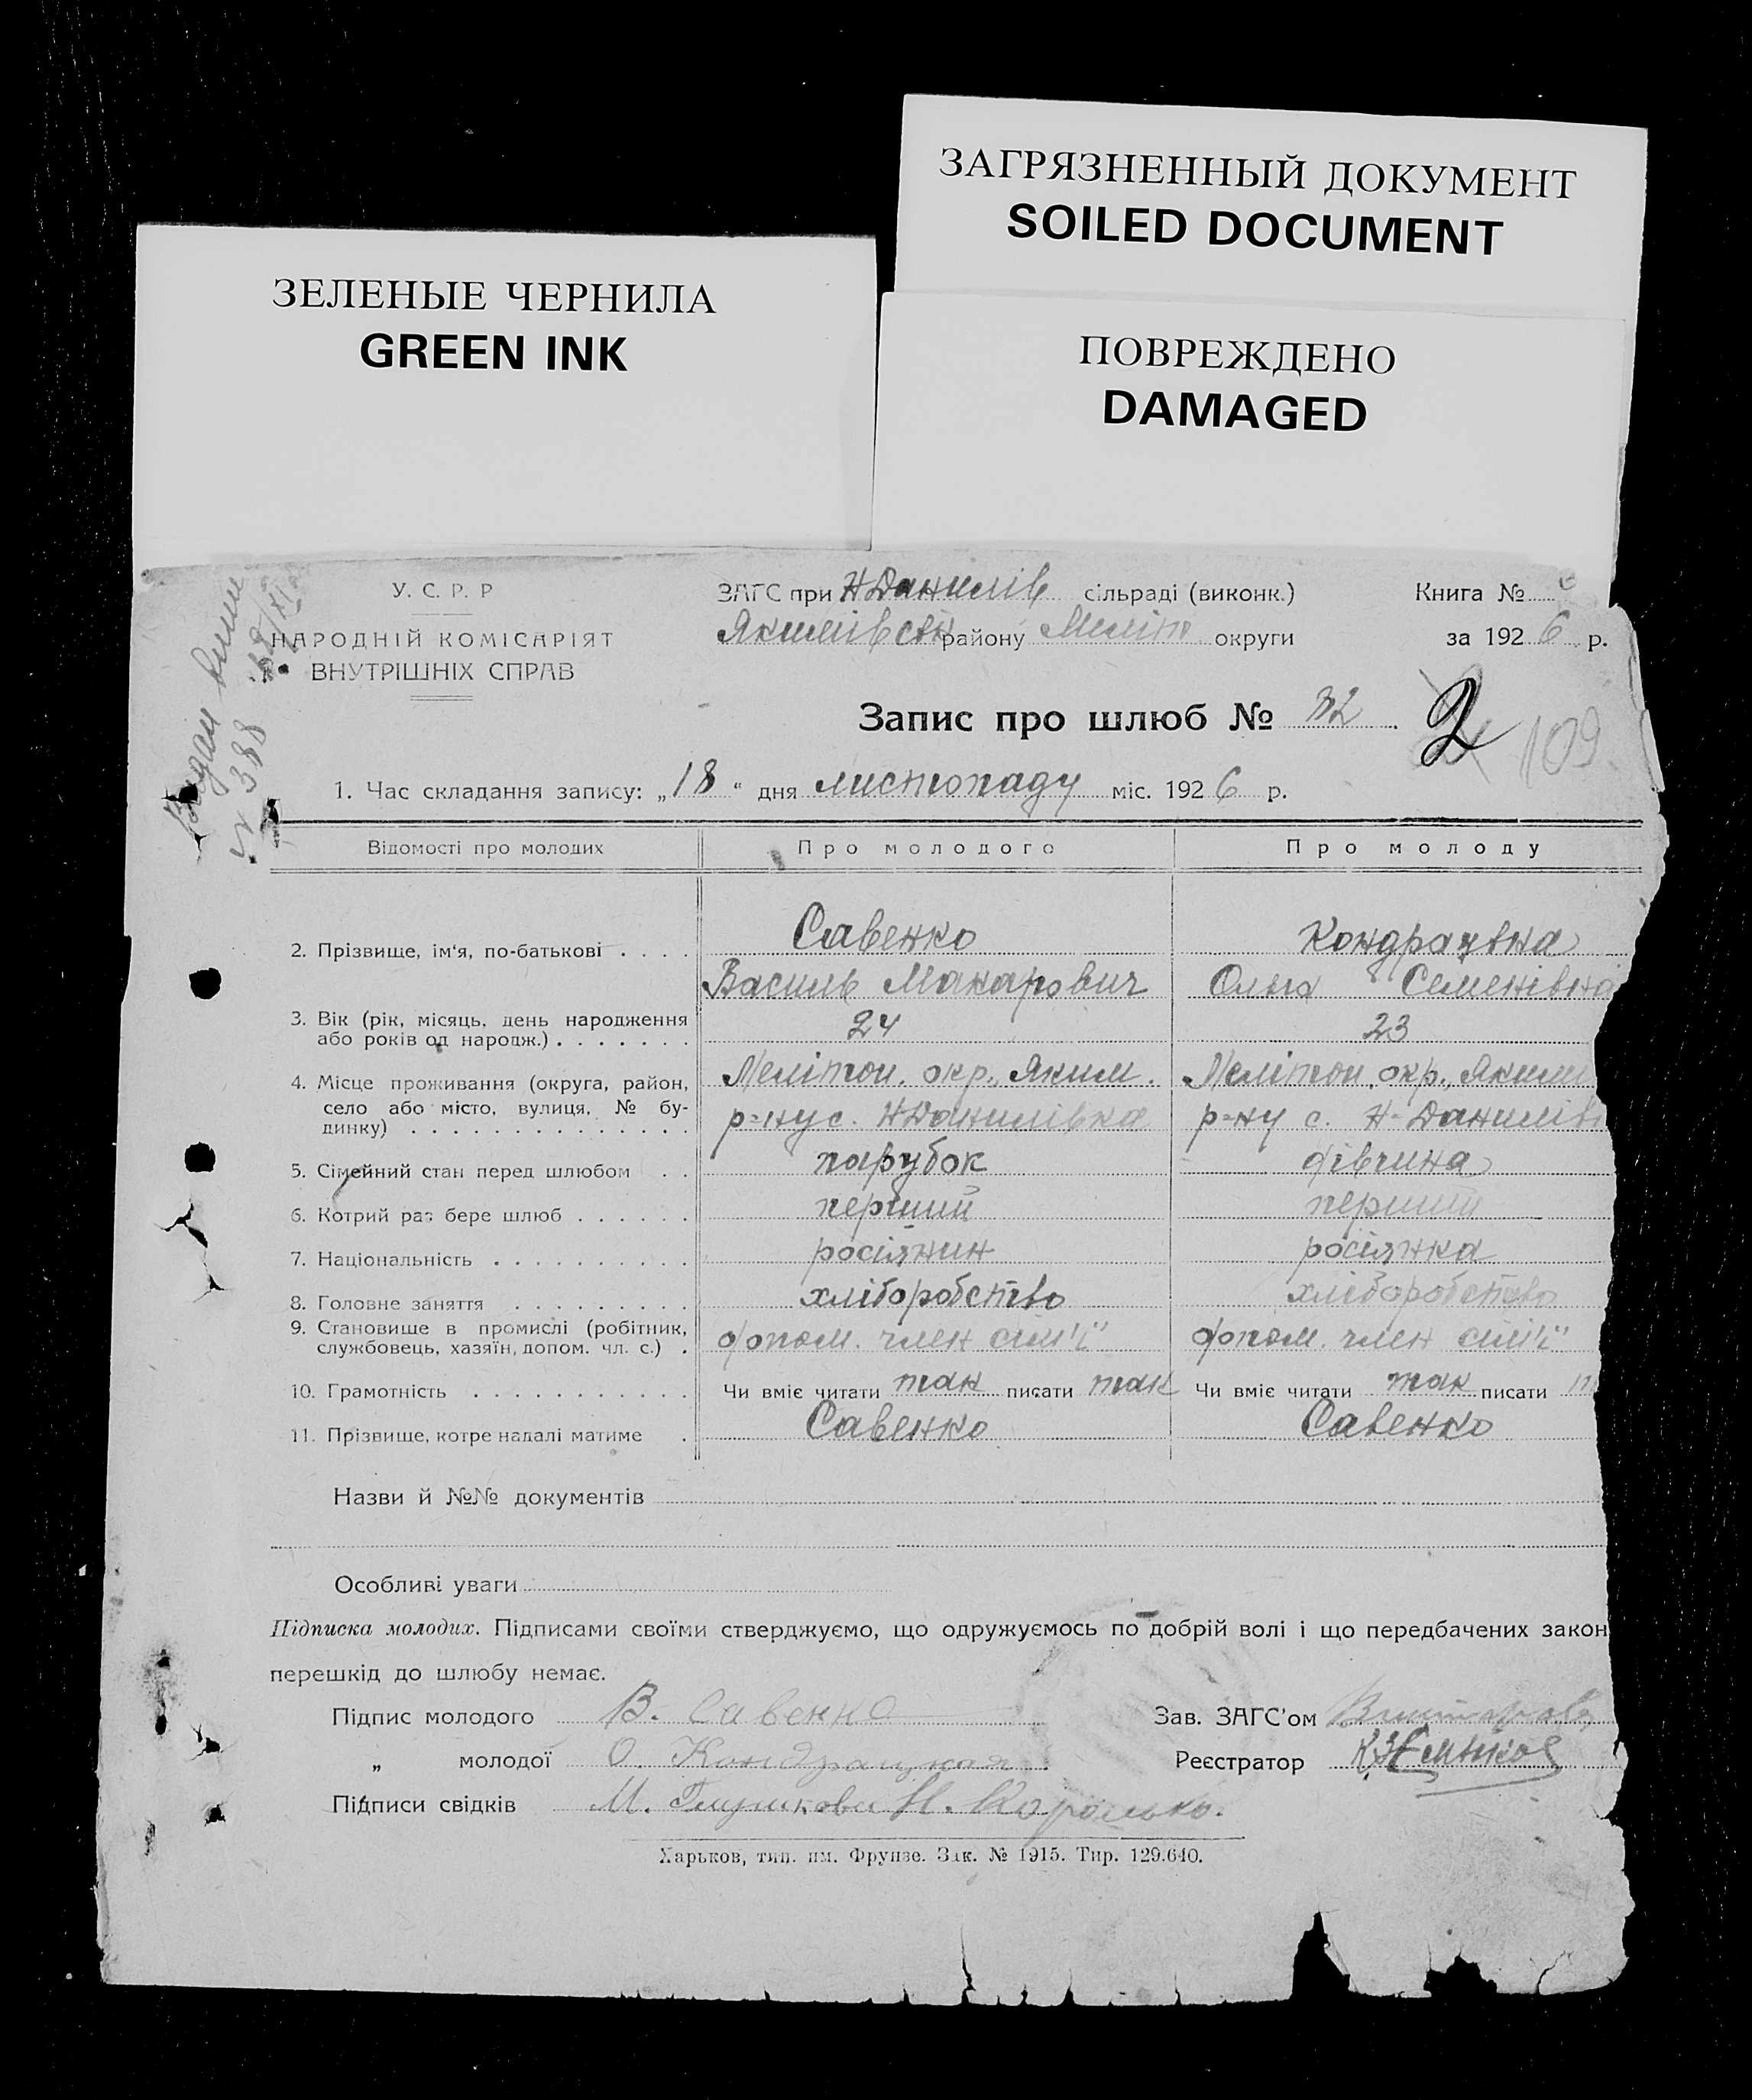 ЗАГРЯЗНЕННЫЙ ДОКУМЕНТ
SOILED DOCUMENT
ЗЕЛЕНЫЕ ЧЕРНИЛА
GREEN INK
ПОВРЕЖДЕНО
DAMAGED
У. С. Р. Р
НАРОДНІЙ КОМІСАРІЯТ
ВНУТРІШНІХ СПРАВ
ЗАГС при Н Данилів сільраді (виконк.)
Якимівськ району Меліт округи
Книга №
за 1926 р.
№ 388
Запис про шлюб № 32
2
109
1. Час складання запису: „18“ дня листопаду міс. 1926 р.
Відомості про молодих Про молодого Про молоду
2. Прізвище, ім‘я, по-батькові . . . . Савенко Кондрацвна
Василь Макарович Ольга Семенівна
3. Вік (рік, місяць, день народження або років од народж.) . . . . . . . 24 23
4. Місце проживання (округа, район, Мелітоп. окр., Яким. Мелітоп. окр., Яким
село або місто, вулиця, № бу-
динку) . . . . . . . . . . . . . . р=ну с. Н Данилівка р=ну с. Н-Данилів
5. Сімейний стан перед шлюбом . . парубок дівчина
6. Котрий раз бере шлюб . . . . . . перший перший
7. Національність . . . . . . . . . . росіянин росіянка
8. Головне заняття . . . . . . . . . хліборобство хліборобство
9. Становище в промислі (робітник, службовець, хазяїн, допом. чл. с.) . допом. член сім'ї допом. член сім'ї
10. Грамотність . . . . . . . . . . . Чи вміє читати так писати так Чи вміє читати так писати
11. Прізвище, котре надалі матиме . Савенко Савенко
Назви й №№ документів
Особливі уваги
Підписка молодих. Підписами своїми стверджуємо, що одружуємось по добрій волі і що передбачених закон
перешкід до шлюбу немає.
Підпис молодого В. Савенко Зав. ЗАГС’ом
„ молодої О. Кондрацкая Реєстратор
Підписи свідків М. Глушкова Н. Королько.
Харьков, тип. им. Фрунзе. Зак. № 1915. Тир. 129.640.